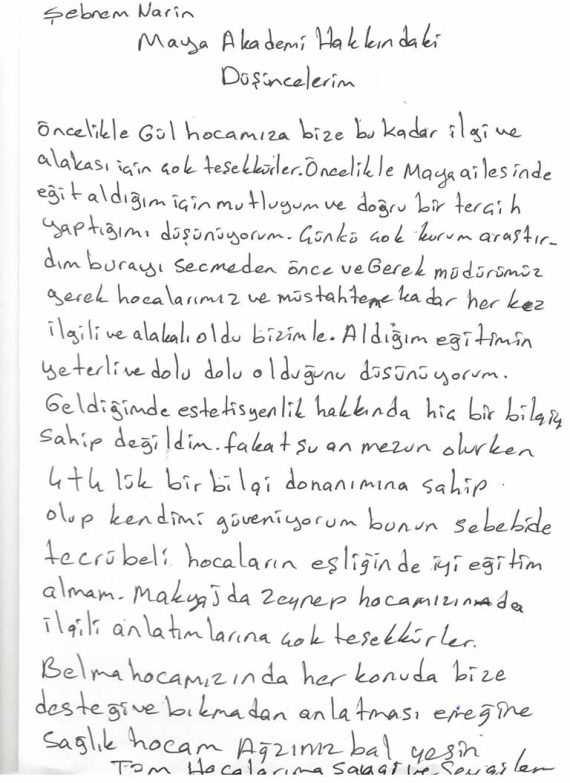 Şebnem Narin
Maya Akademi Hakkındaki
Düşüncelerim
Öncelikle Gül hocamıza bize bu kadar ilgi ve
alakası için çok teşekkürler. Öncelikle Maya ailesinde
eğit aldığım için mutluyum ve doğru bir tercih
yaptığımı düşünüyorum. Çünkü çok kurum araştır-
dım burayı secmeden önce ve Gerek müdürümüz
gerek hocalarımız ve müstahteme kadar her kez
ilgili ve alakalı oldu bizimle. Aldığım eğitimin
yeterli ve dolu dolu olduğunu düsünüyorum.
Geldiğimde estetisyenlik hakkında hiç bir bilgiye
sahip değildim. fakat şu an mezun olurken
4+4 lük bir bilgi donanımına sahip
olup kendimi güveniyorum bunun sebebide
tecrübeli hocaların eşliğinde iyi eğitim
almam. Makyajda Zeynep hocamızında
ilgili anlatımlarına çok teşekkürler.
Belma hocamızında her konuda bize
desteği ve bıkmadan anlatması emeğine
sağlık hocam Ağzınız bal yesin
Tüm Hocalarıma Saygı ve Sevgiler